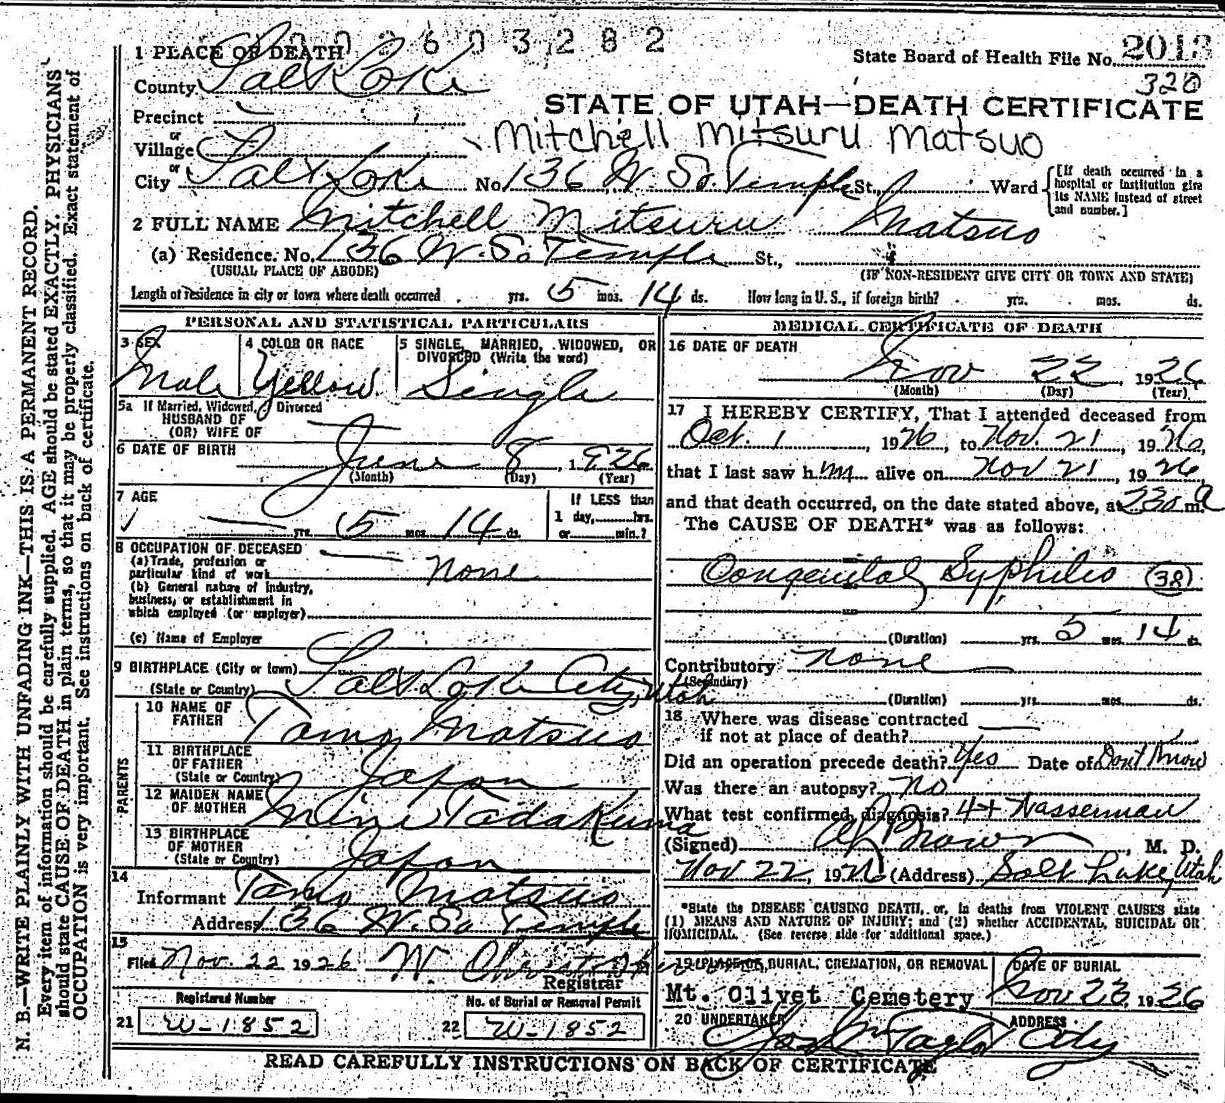 2603282
1 PLACE OF DEATH
State Board of Health File No. 2013
County Salt Lake
320
STATE OF UTAH—DEATH CERTIFICATE
Precinct
or
Mitchell Mitsuru Matsuo
Village
or
City Salt Lake No. 136 W. So. Temple St., Ward
[If death occurred in a hospital or institution give its NAME instead of street and number.]
2 FULL NAME Mitchell Mitsuru Matsuo
(a) Residence. No. 136 W. So. Temple St.,
(USUAL PLACE OF ABODE) (IF NON-RESIDENT GIVE CITY OR TOWN AND STATE)
Length of residence in city or town where death occurred yrs. 5 mos. 14 ds. How long in U. S., if foreign birth? yrs. mos. ds.
PERSONAL AND STATISTICAL PARTICULARS
3 SEX 4 COLOR OR RACE 5 SINGLE, MARRIED, WIDOWED, OR
DIVORCED (Write the word)
Male Yellow Single
5a If Married, Widowed, Divorced
HUSBAND OF
(OR) WIFE OF
6 DATE OF BIRTH
June 8, 1926
(Month) (Day) (Year)
7 AGE
If LESS than
1 day, hrs.
yrs. 5 mos. 14 ds. or min.?
8 OCCUPATION OF DECEASED
(a) Trade, profession or
particular kind of work none
(b) General nature of industry,
business, or establishment in
which employed (or employer)
(c) Name of Employer
9 BIRTHPLACE (City or town)
(State or Country) Salt Lake City, Utah
PARENTS
10 NAME OF
FATHER Tamo Matsuo
11 BIRTHPLACE
OF FATHER
(State or Country) Japan
12 MAIDEN NAME
OF MOTHER Mine Tadakuma
13 BIRTHPLACE
OF MOTHER
(State or Country) Japan
14
Informant Tamo Matsuo
Address 136 W. So Temple
15
Filed Nov. 22 1926 W
Registrar
Registered Number No. of Burial or Removal Permit
21 W-1852 22 W-1852
MEDICAL CERTIFICATE OF DEATH
16 DATE OF DEATH
Nov 22, 1926
(Month) (Day) (Year)
17 I HEREBY CERTIFY, That I attended deceased from
Oct. 1 1926, to Nov. 21, 1926,
that I last saw h im alive on Nov 21, 1926,
and that death occurred, on the date stated above, at 230 m. a
The CAUSE OF DEATH* was as follows:
Congenital Syphilis (38)
(Duration) yrs. 5 mos. 14 ds.
Contributory none
(Secondary)
(Duration) yrs. mos. ds.
18 Where was disease contracted
if not at place of death?
Did an operation precede death? Yes Date of Dont Know
Was there an autopsy? No
What test confirmed diagnosis? 4+ Wasserman
(Signed) Brown, M. D.
Nov 22, 1926 (Address) Salt Lake, Utah
*State the DISEASE CAUSING DEATH, or, in deaths from VIOLENT CAUSES state
(1) MEANS AND NATURE OF INJURY; and (2) whether ACCIDENTAL, SUICIDAL OR
HOMICIDAL. (See reverse side for additional space.)
19 PLACE OF BURIAL, CREMATION, OR REMOVAL DATE OF BURIAL
Mt. Olivet Cemetery Nov 23, 1926
20 UNDERTAKER ADDRESS
Taylor City
READ CAREFULLY INSTRUCTIONS ON BACK OF CERTIFICATE
N. B.—WRITE PLAINLY WITH UNFADING INK—THIS IS A PERMANENT RECORD.
Every item of information should be carefully supplied. AGE should be stated EXACTLY. PHYSICIANS
should state CAUSE OF DEATH in plain terms, so that it may be properly classified. Exact statement of
OCCUPATION is very important. See instructions on back of certificate.